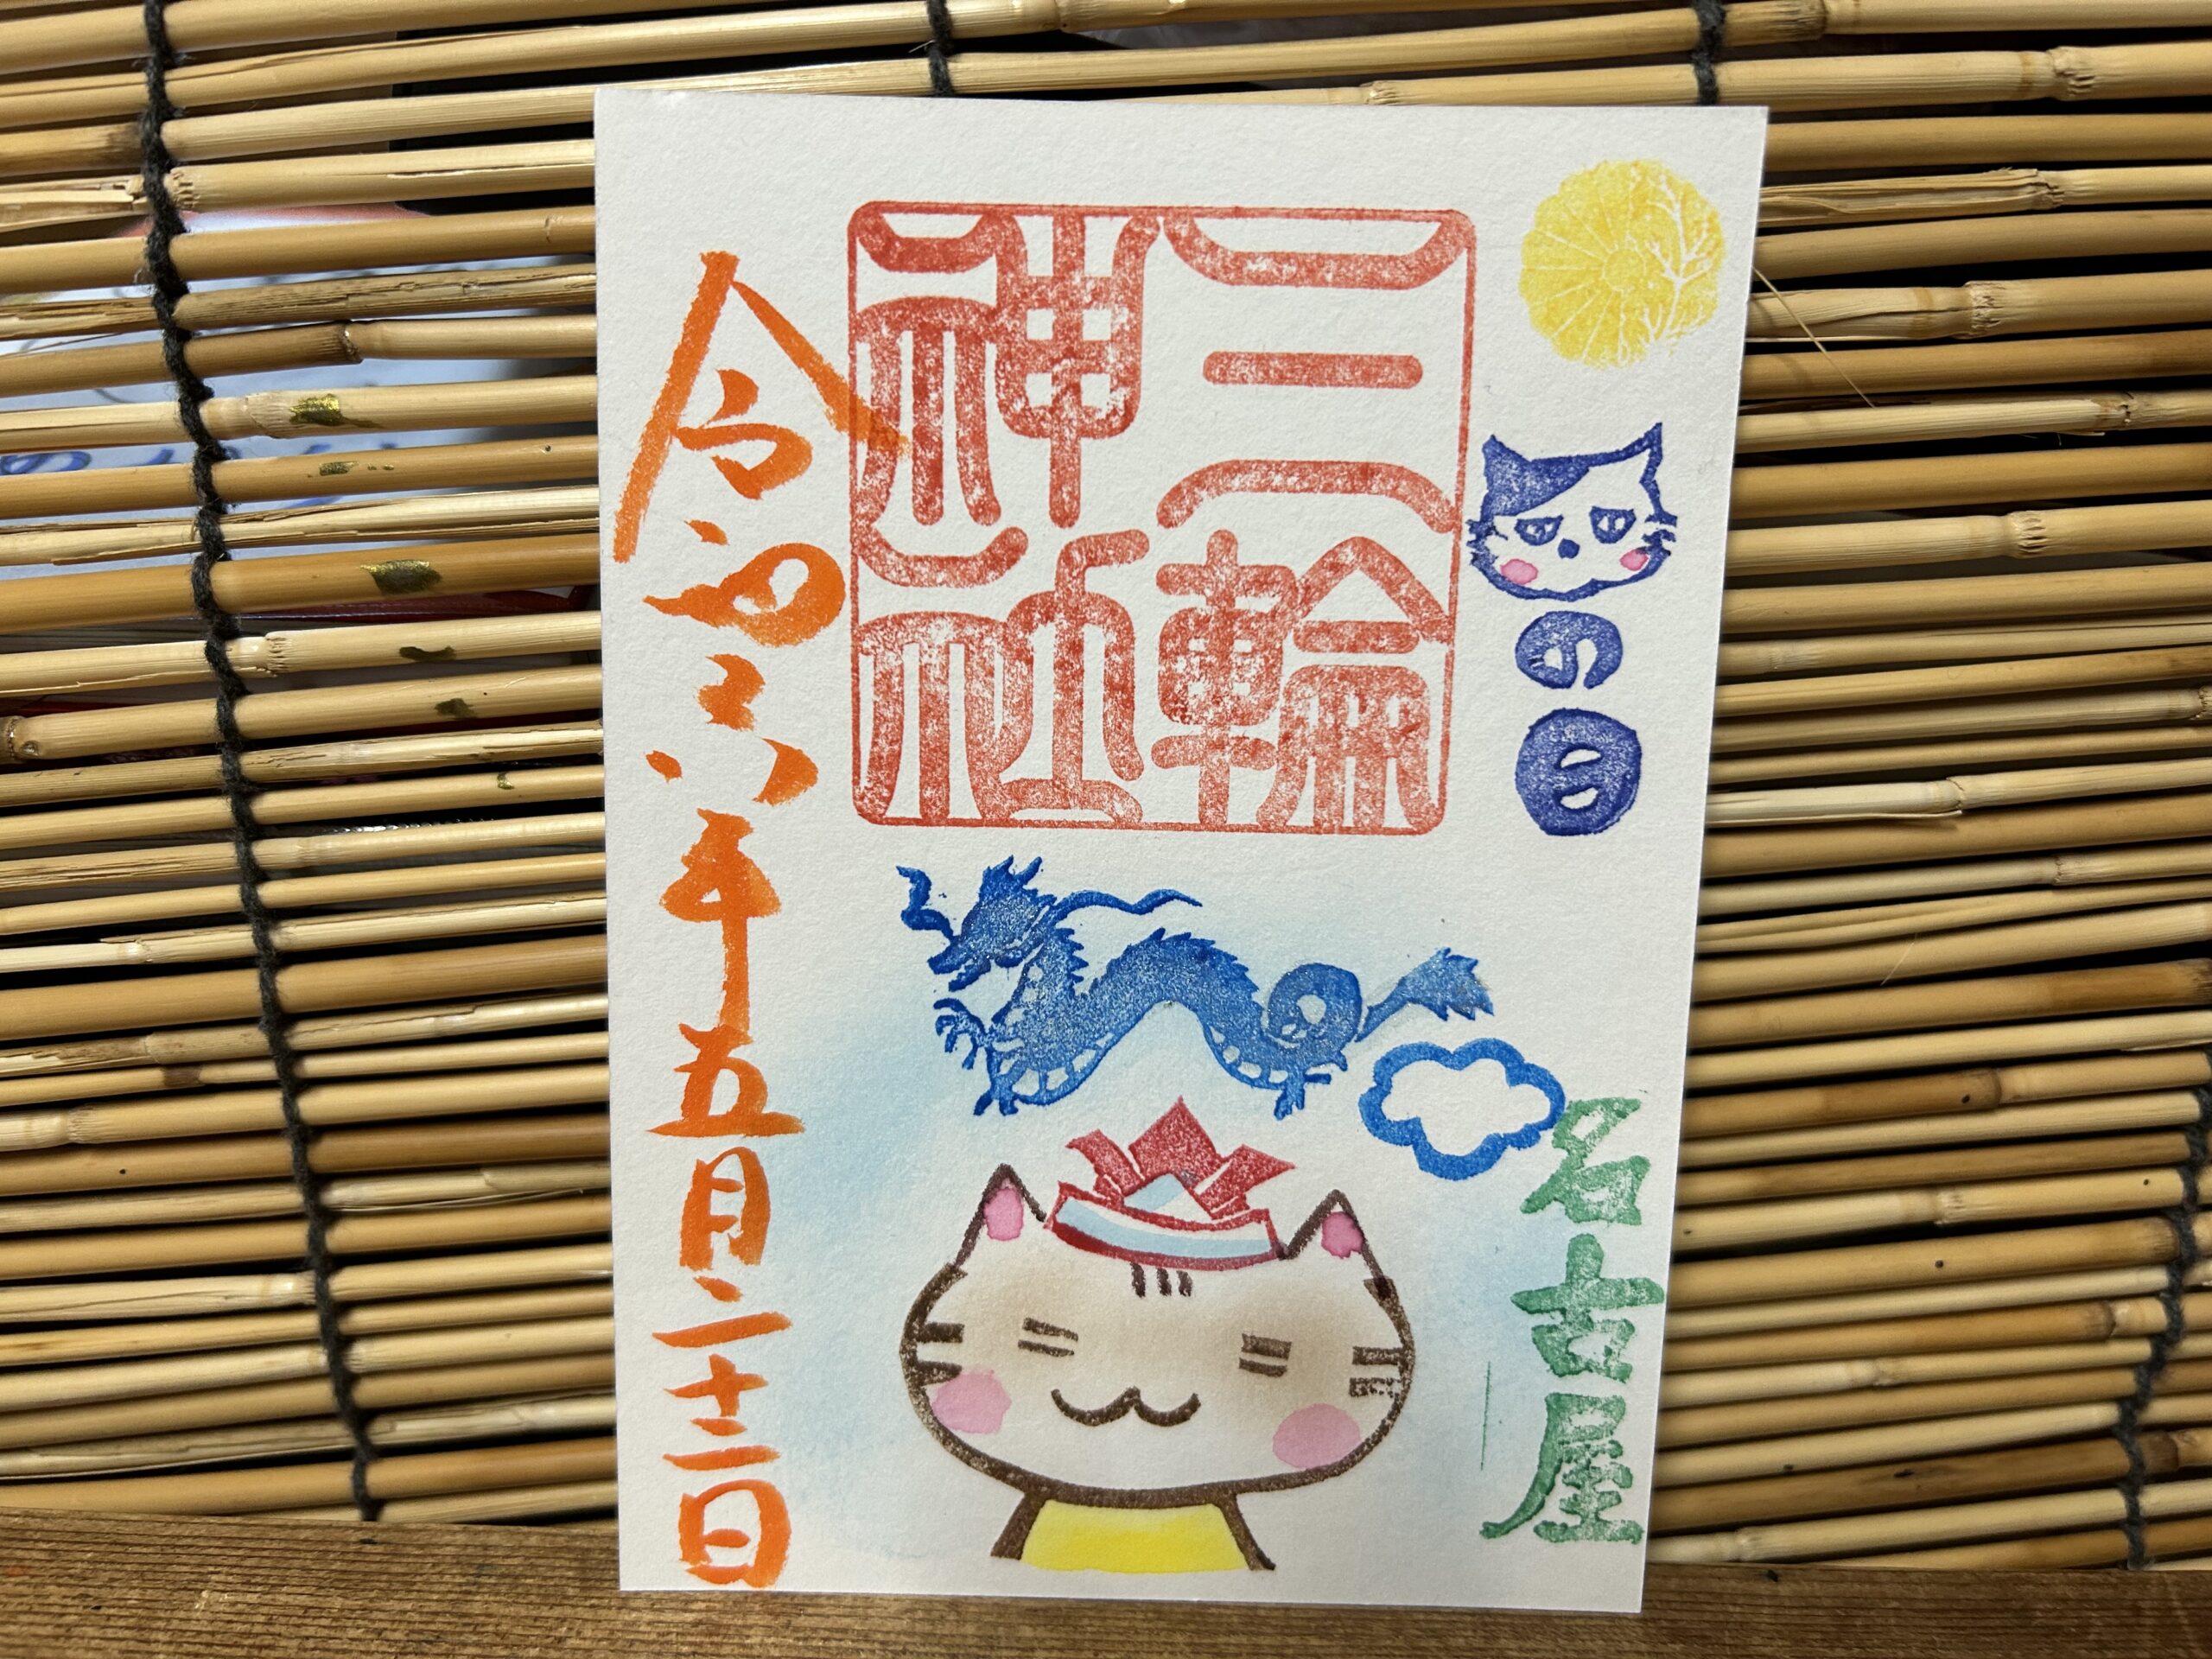 の日
名古屋
三輪
神社
令和六年五月二十二日